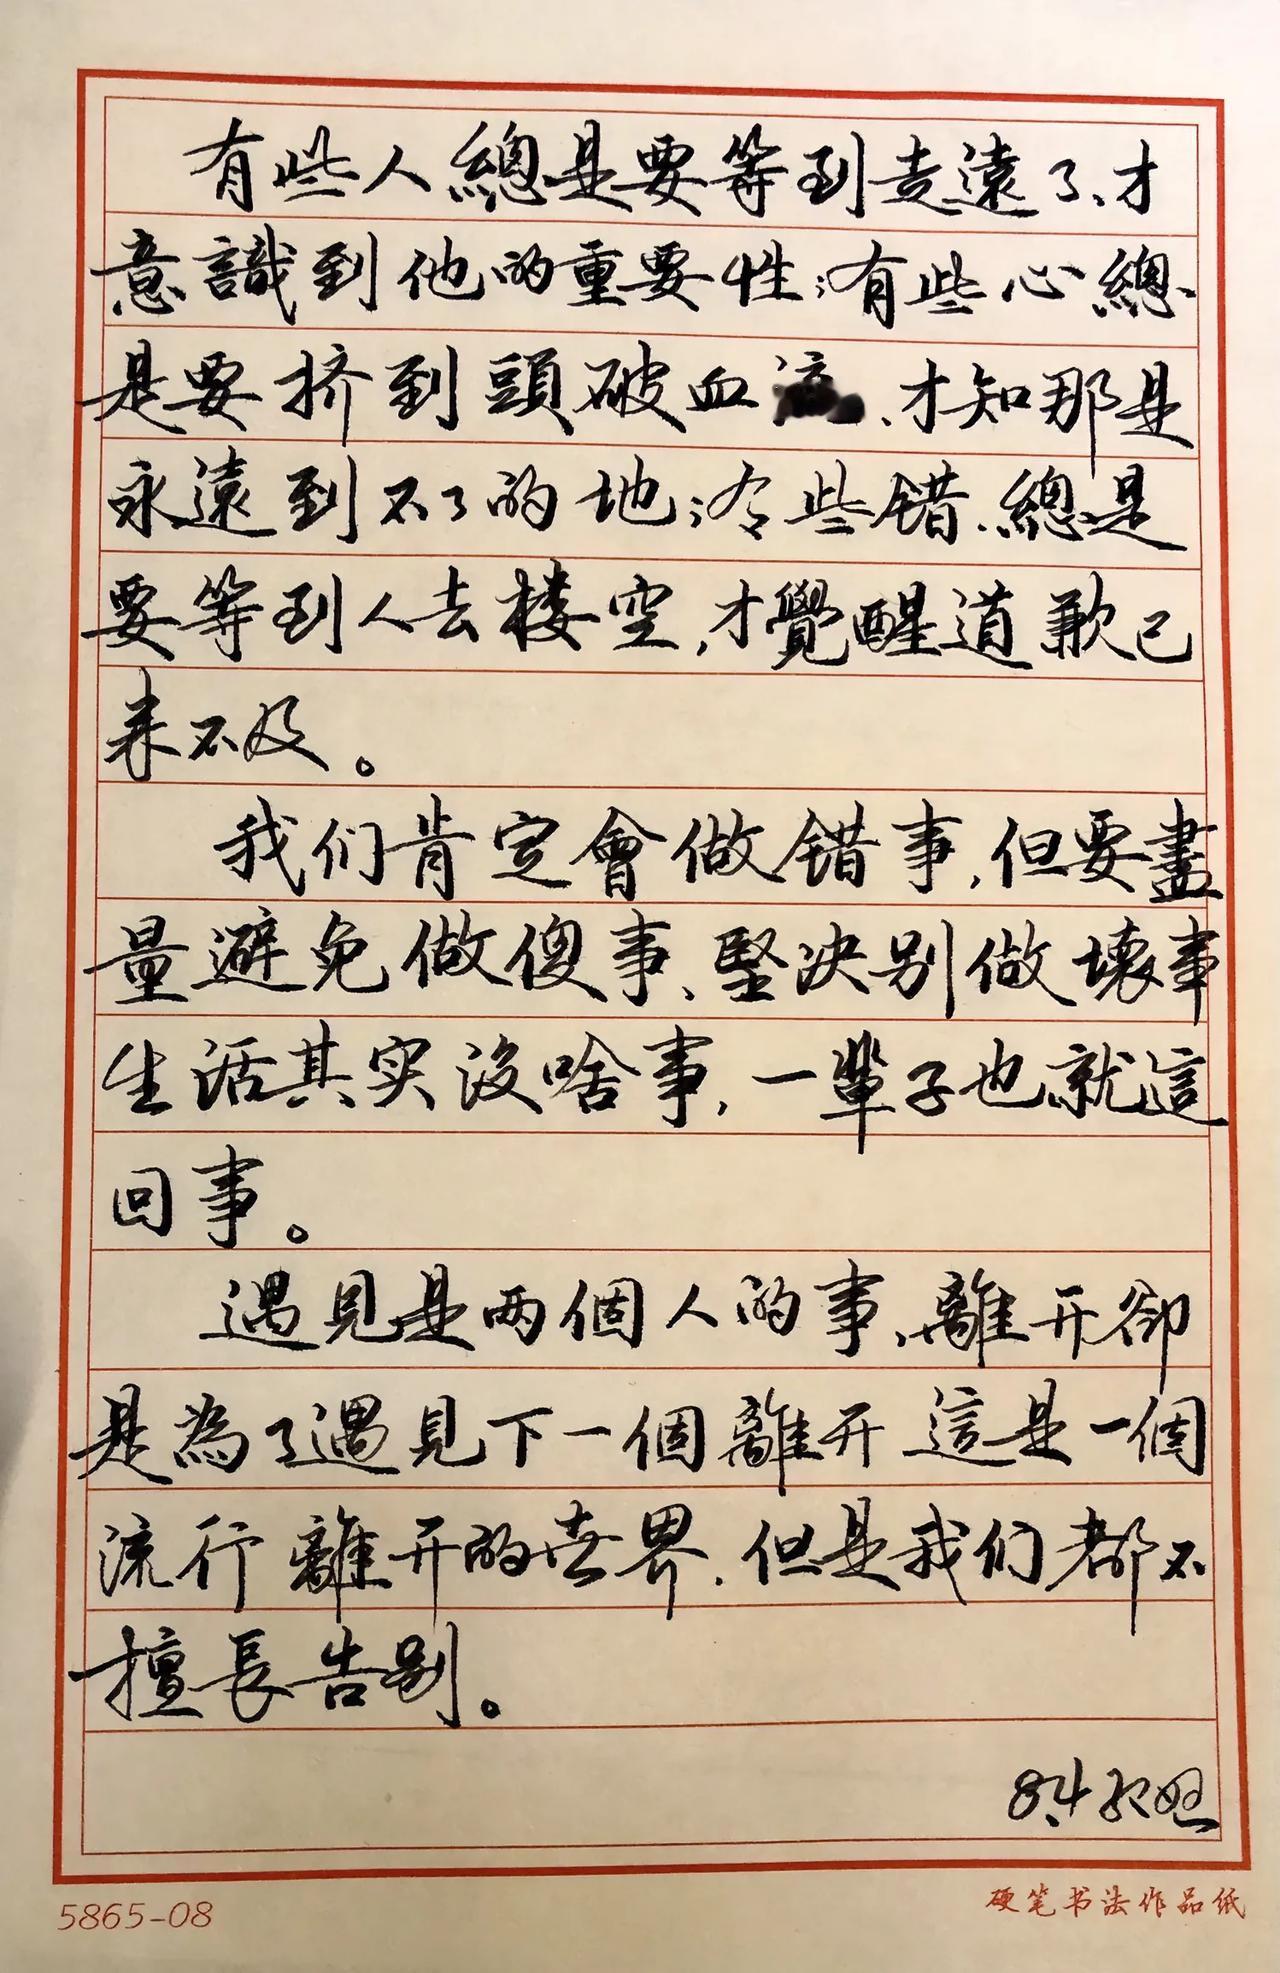 有些人總是要等到走遠了、才
意識到他的重要性；有些心總
是要挤到頭破血流、才知那是
永遠到不了的地；有些错、總是
要等到人去楼空，才覺醒道歉已
来不及。
我们肯定會做错事，但要盡
量避免做傻事、堅决别做壞事
生活其实没啥事，一輩子也就這
回事。
遇見是两個人的事、離开卻
是為了遇見下一個離开 這是一個
流行離开的世界，但是我们都不
擅長告别。
8.4
5865-08
硬笔书法作品纸